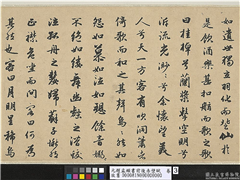 如遺世獨立羽化而登仙於
是飲酒樂甚扣舷而歌之歌
曰桂棹兮蘭槳擊空明兮
泝流光渺渺兮余懷望美
人兮天一方客有吹洞簫者
倚歌而和之其聲嗚嗚然如
怨如慕如泣如訴餘音嫋嫋
不絕如縷舞幽壑之潛蛟
泣孤舟之嫠婦蘇子愀然
正襟危坐而問客曰何為
其然也客曰月明星稀烏
元趙孟頫書前後赤壁賦 冊